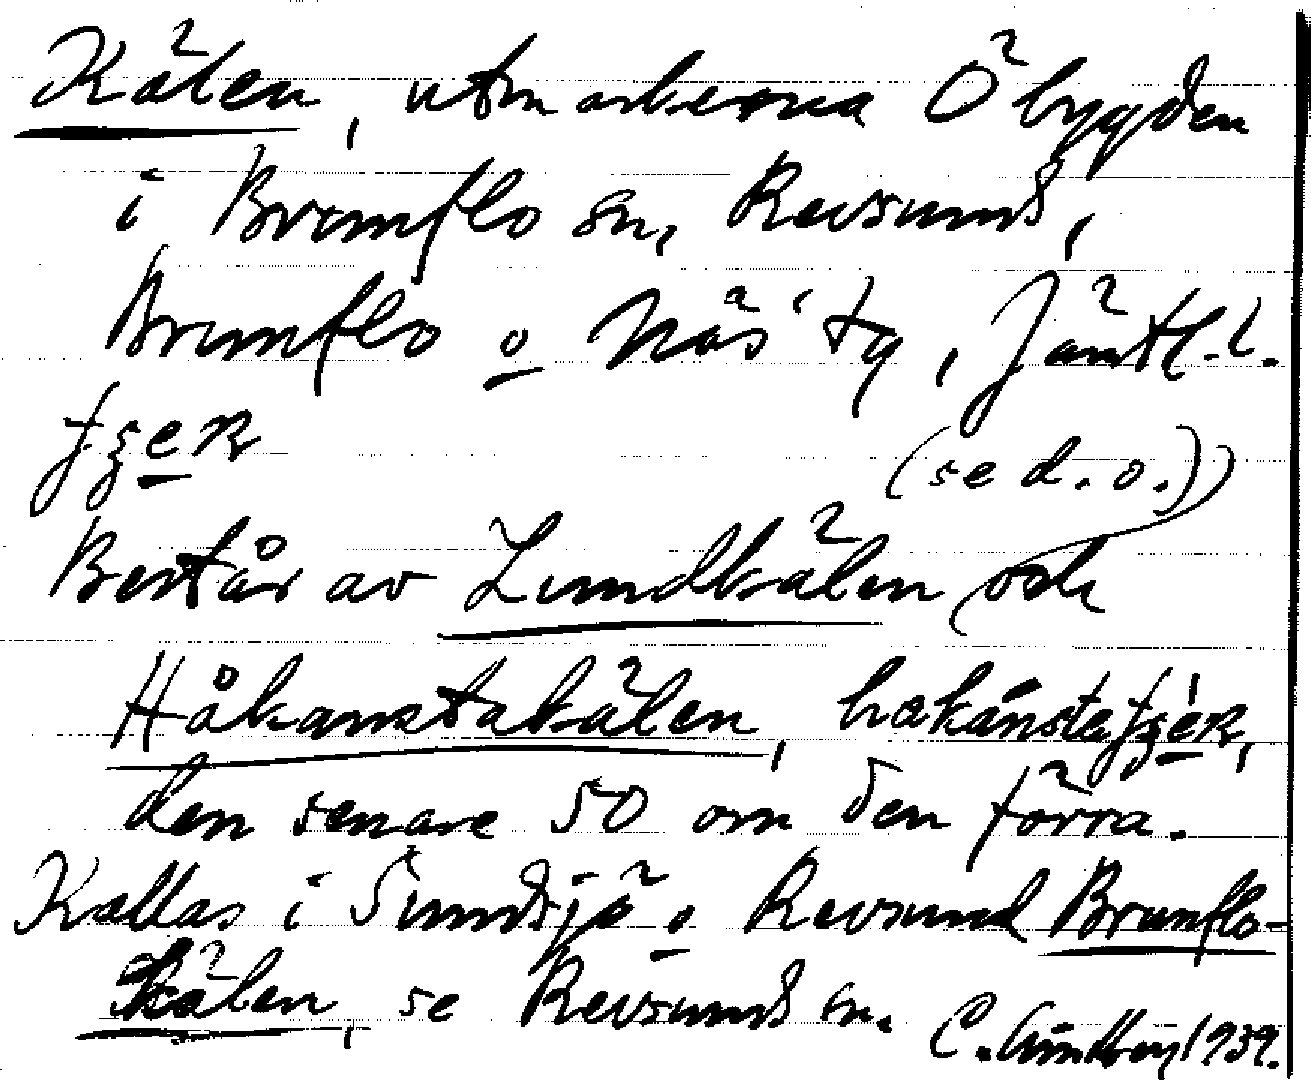 Kälen, utmarkerna Öbygden
i Brunflo sn, Revsunds,
Brunflo o Näs tg, Jämtl. l.
(se d. o.)
Består av Lundkälen och
Håkanstakälen,
den senare SO om den förra.
Kallas i Sundsjö o Revsund Brunflo-
kälen, se Revsunds sn. 1939.